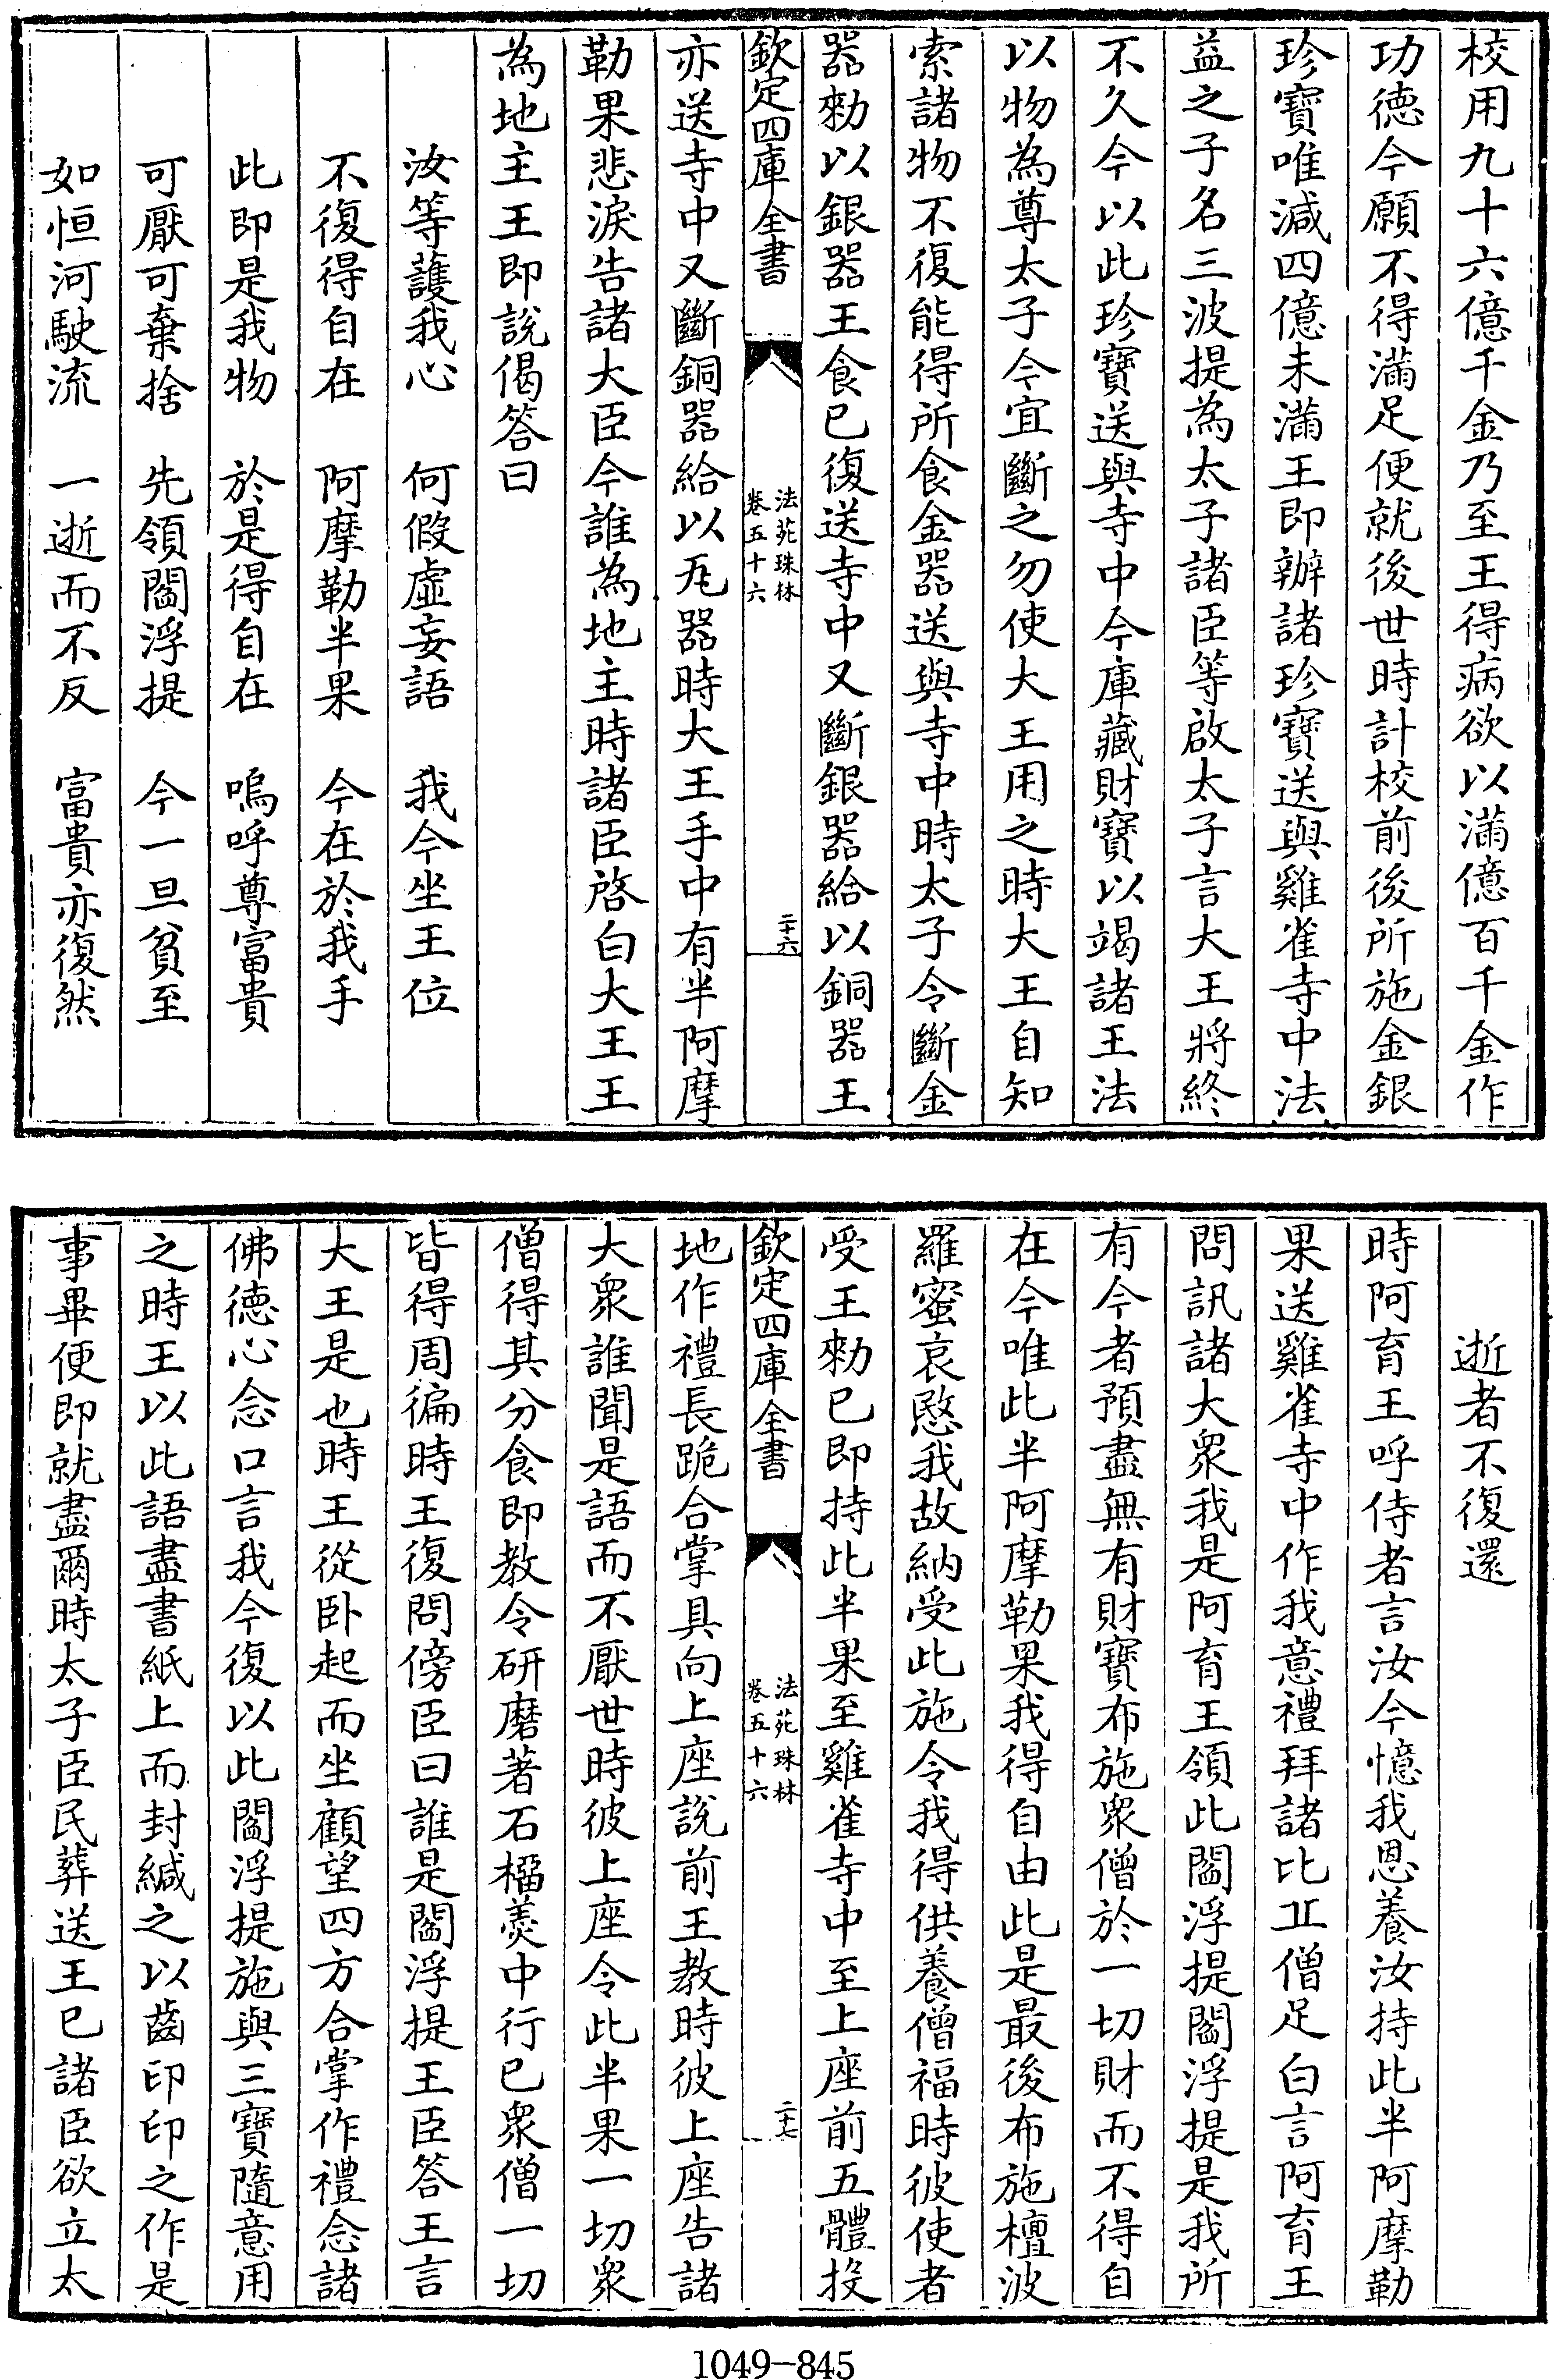 校用九十六億千金乃至王得病欲以滿億百千金作
功德今願不得滿足便就後世時計校前後所施金銀
珍寶唯減四億未滿王即辦諸珍寶送與雞雀寺中法
益之子名三波提為太子諸臣等啟太子言大王將終
不久今以此珍寶送與寺中今庫藏財寶以竭諸王法
以物為尊太子今宜斷之勿使大王用之時大王自知
索諸物不復能得所食金器送與寺中時太子令斷金
器勅以銀器王食已復送寺中又斷銀器給以銅器王
欽定四庫全書
法苑珠林
卷五十六
二十六
亦送寺中又斷銅器給以瓦器時大王手中有半阿摩
勒果悲淚告諸大臣今誰為地主時諸臣啓白大王王
為地主王即說偈答曰
汝等護我心　何假虛妄語　我今坐王位
不復得自在　阿摩勒半果　今在於我手
此即是我物　於是得自在　嗚呼尊富貴
可厭可棄捨　先領閻浮提　今一旦貧至
如恒河駛流　一逝而不反　富貴亦復然
逝者不復還
時阿育王呼侍者言汝今憶我恩養汝持此半阿摩勒
果送雞雀寺中作我意禮拜諸比丘僧足白言阿育王
問訊諸大衆我是阿育王領此閻浮提閻浮提是我所
有今者預盡無有財寶布施衆僧於一切財而不得自
在今唯此半阿摩勒果我得自由此是最後布施檀波
羅蜜哀愍我故納受此施令我得供養僧福時彼使者
受王勅已即持此半果至雞雀寺中至上座前五體投
欽定四庫全書
法苑珠林
卷五十六
二十七
地作禮長跪合掌具向上座說前王教時彼上座告諸
大衆誰聞是語而不厭世時彼上座令此半果一切衆
僧得其分食即教令研磨著石榴羮中行已衆僧一切
皆得周徧時王復問傍臣曰誰是閻浮提王臣答王言
大王是也時王從卧起而坐顧望四方合掌作禮念諸
佛德心念口言我今復以此閻浮提施與三寶隨意用
之時王以此語盡書紙上而封緘之以齒印印之作是
事畢便即就盡爾時太子臣民葬送王已諸臣欲立太
1049-845